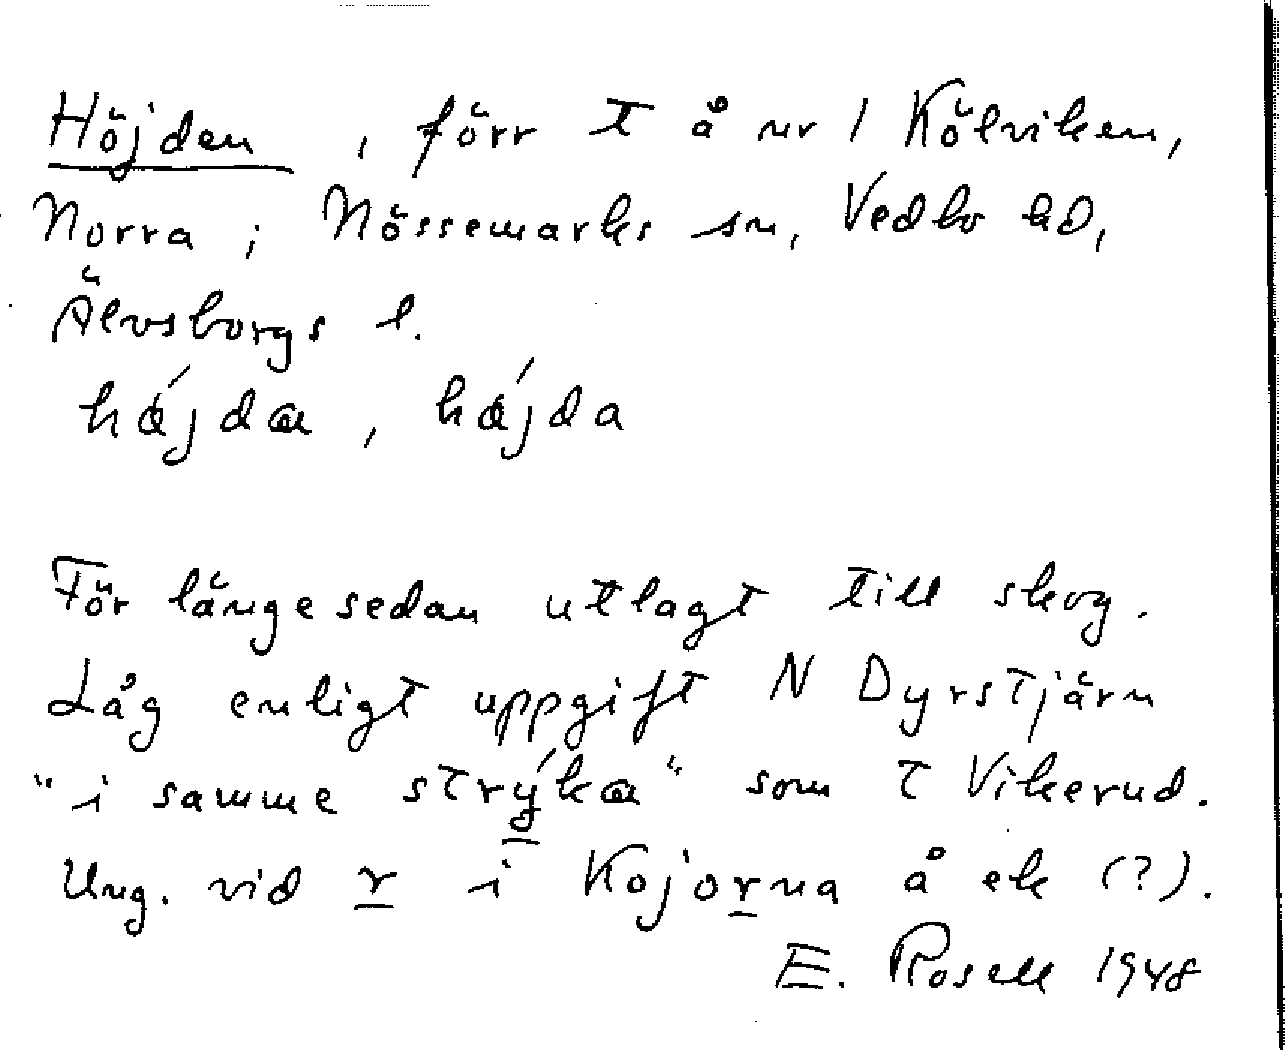 Höjden, förr t å nr 1 Kölviken,
Norra; Nössemarks sn, Vedbo hd,
Älvsborgs l.
hǿjdæ, hǿjda
För länge sedan utlagt till skog.
Låg enligt uppgift N Dyrstjärn
"i samme strýkæ" som t Vikerud.
Ung. vid r i Kojorna å ek (?).
E. Rosell 1948